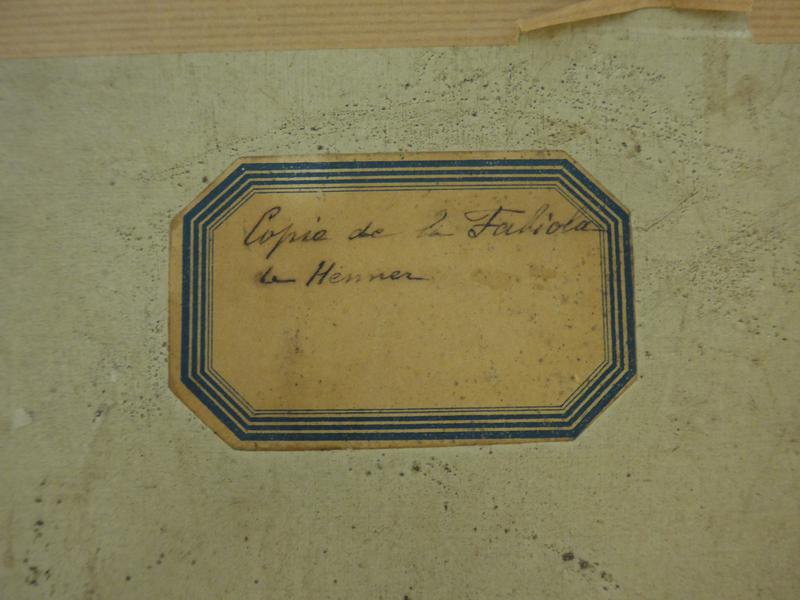 Copie de la Fabiola
de Henner